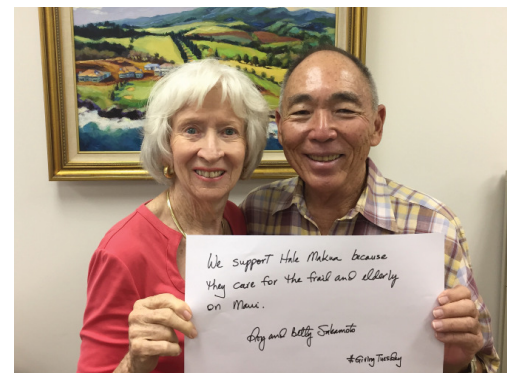 We support Hale Makua because
they care for the frail and elderly
on Maui.
Roy and Betty Sakamoto
#GivingTuesday